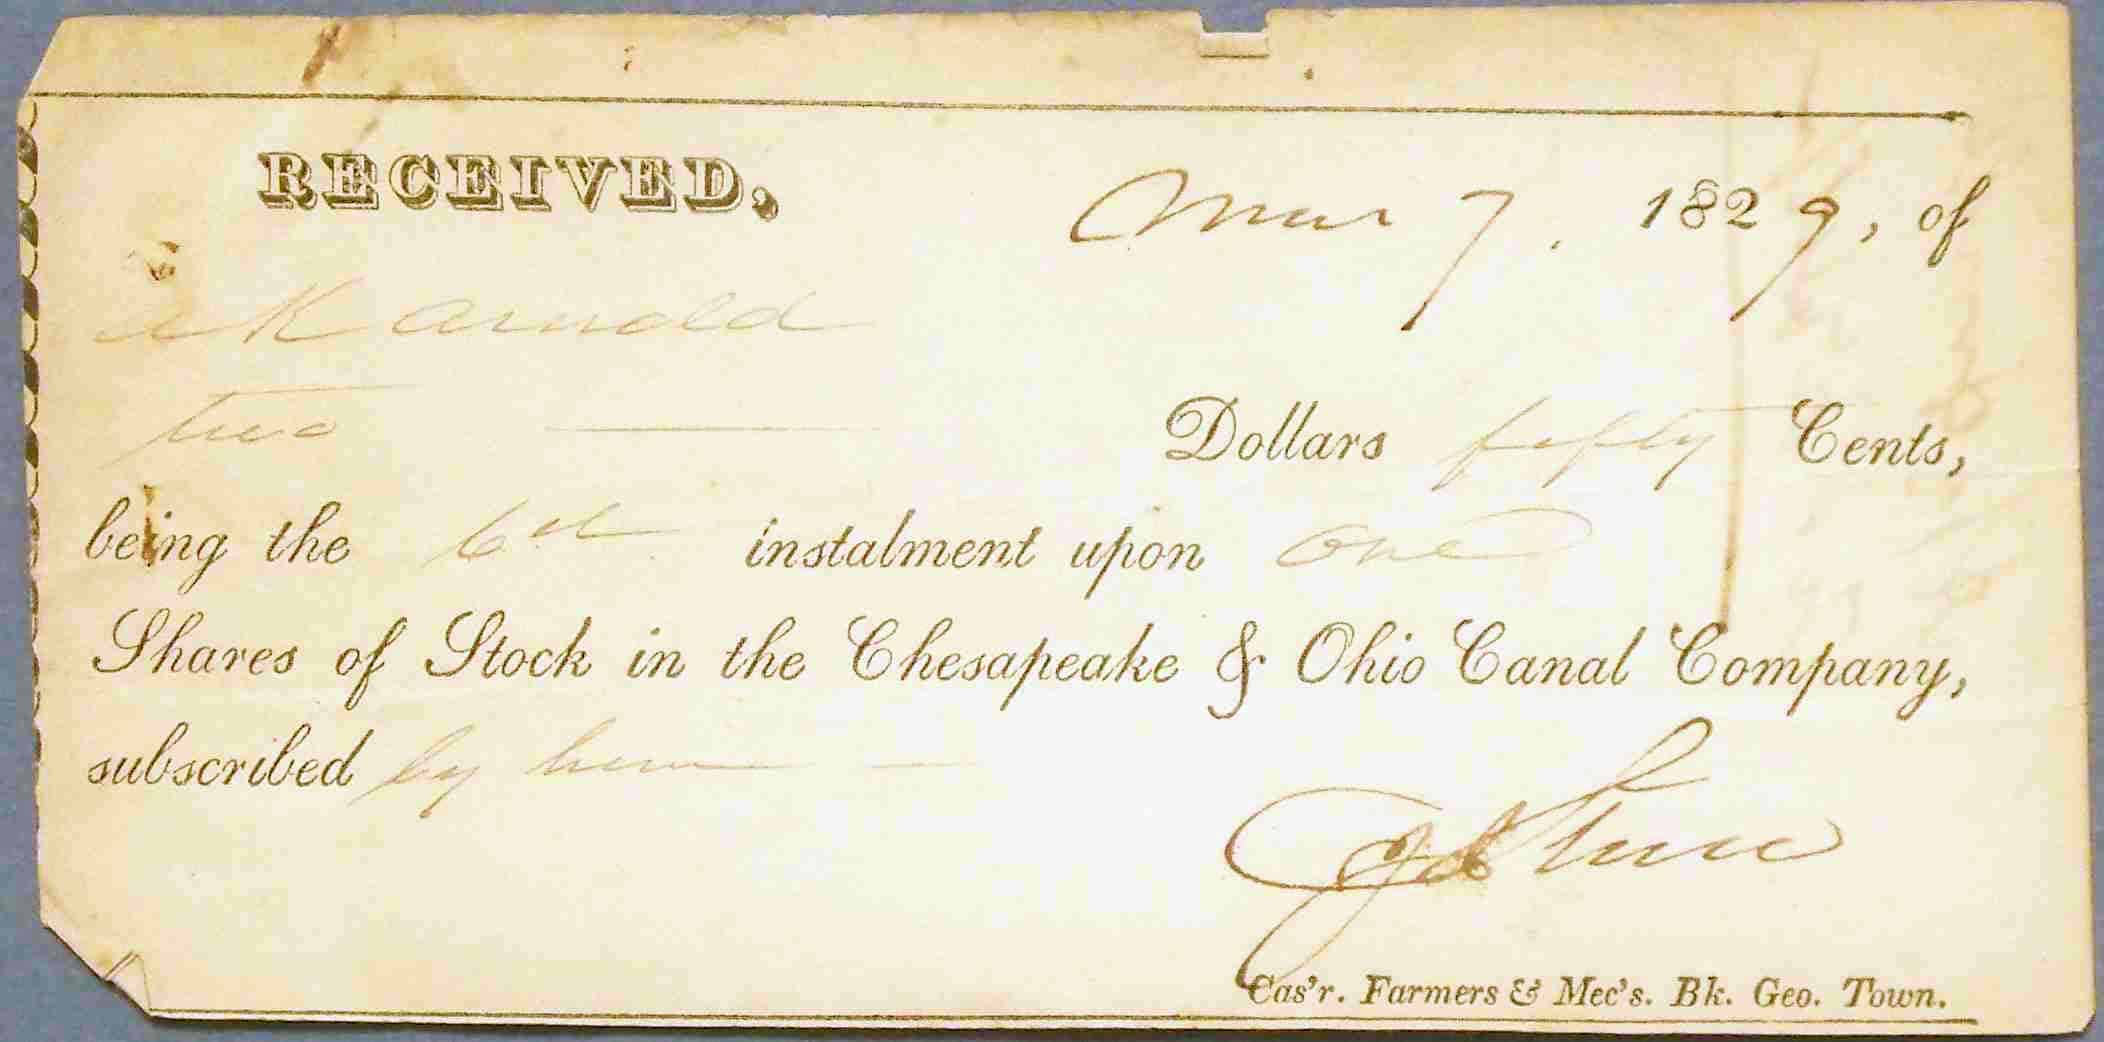 RECEIVED, Mar 7. 1829, of
K Arnold
two Dollars fifty Cents,
being the 6th instalment upon one
Shares of Stock in the Chesapeake & Ohio Canal Company,
subscribed by him
Cas'r. Farmers & Mec's. Bk. Geo. Town.